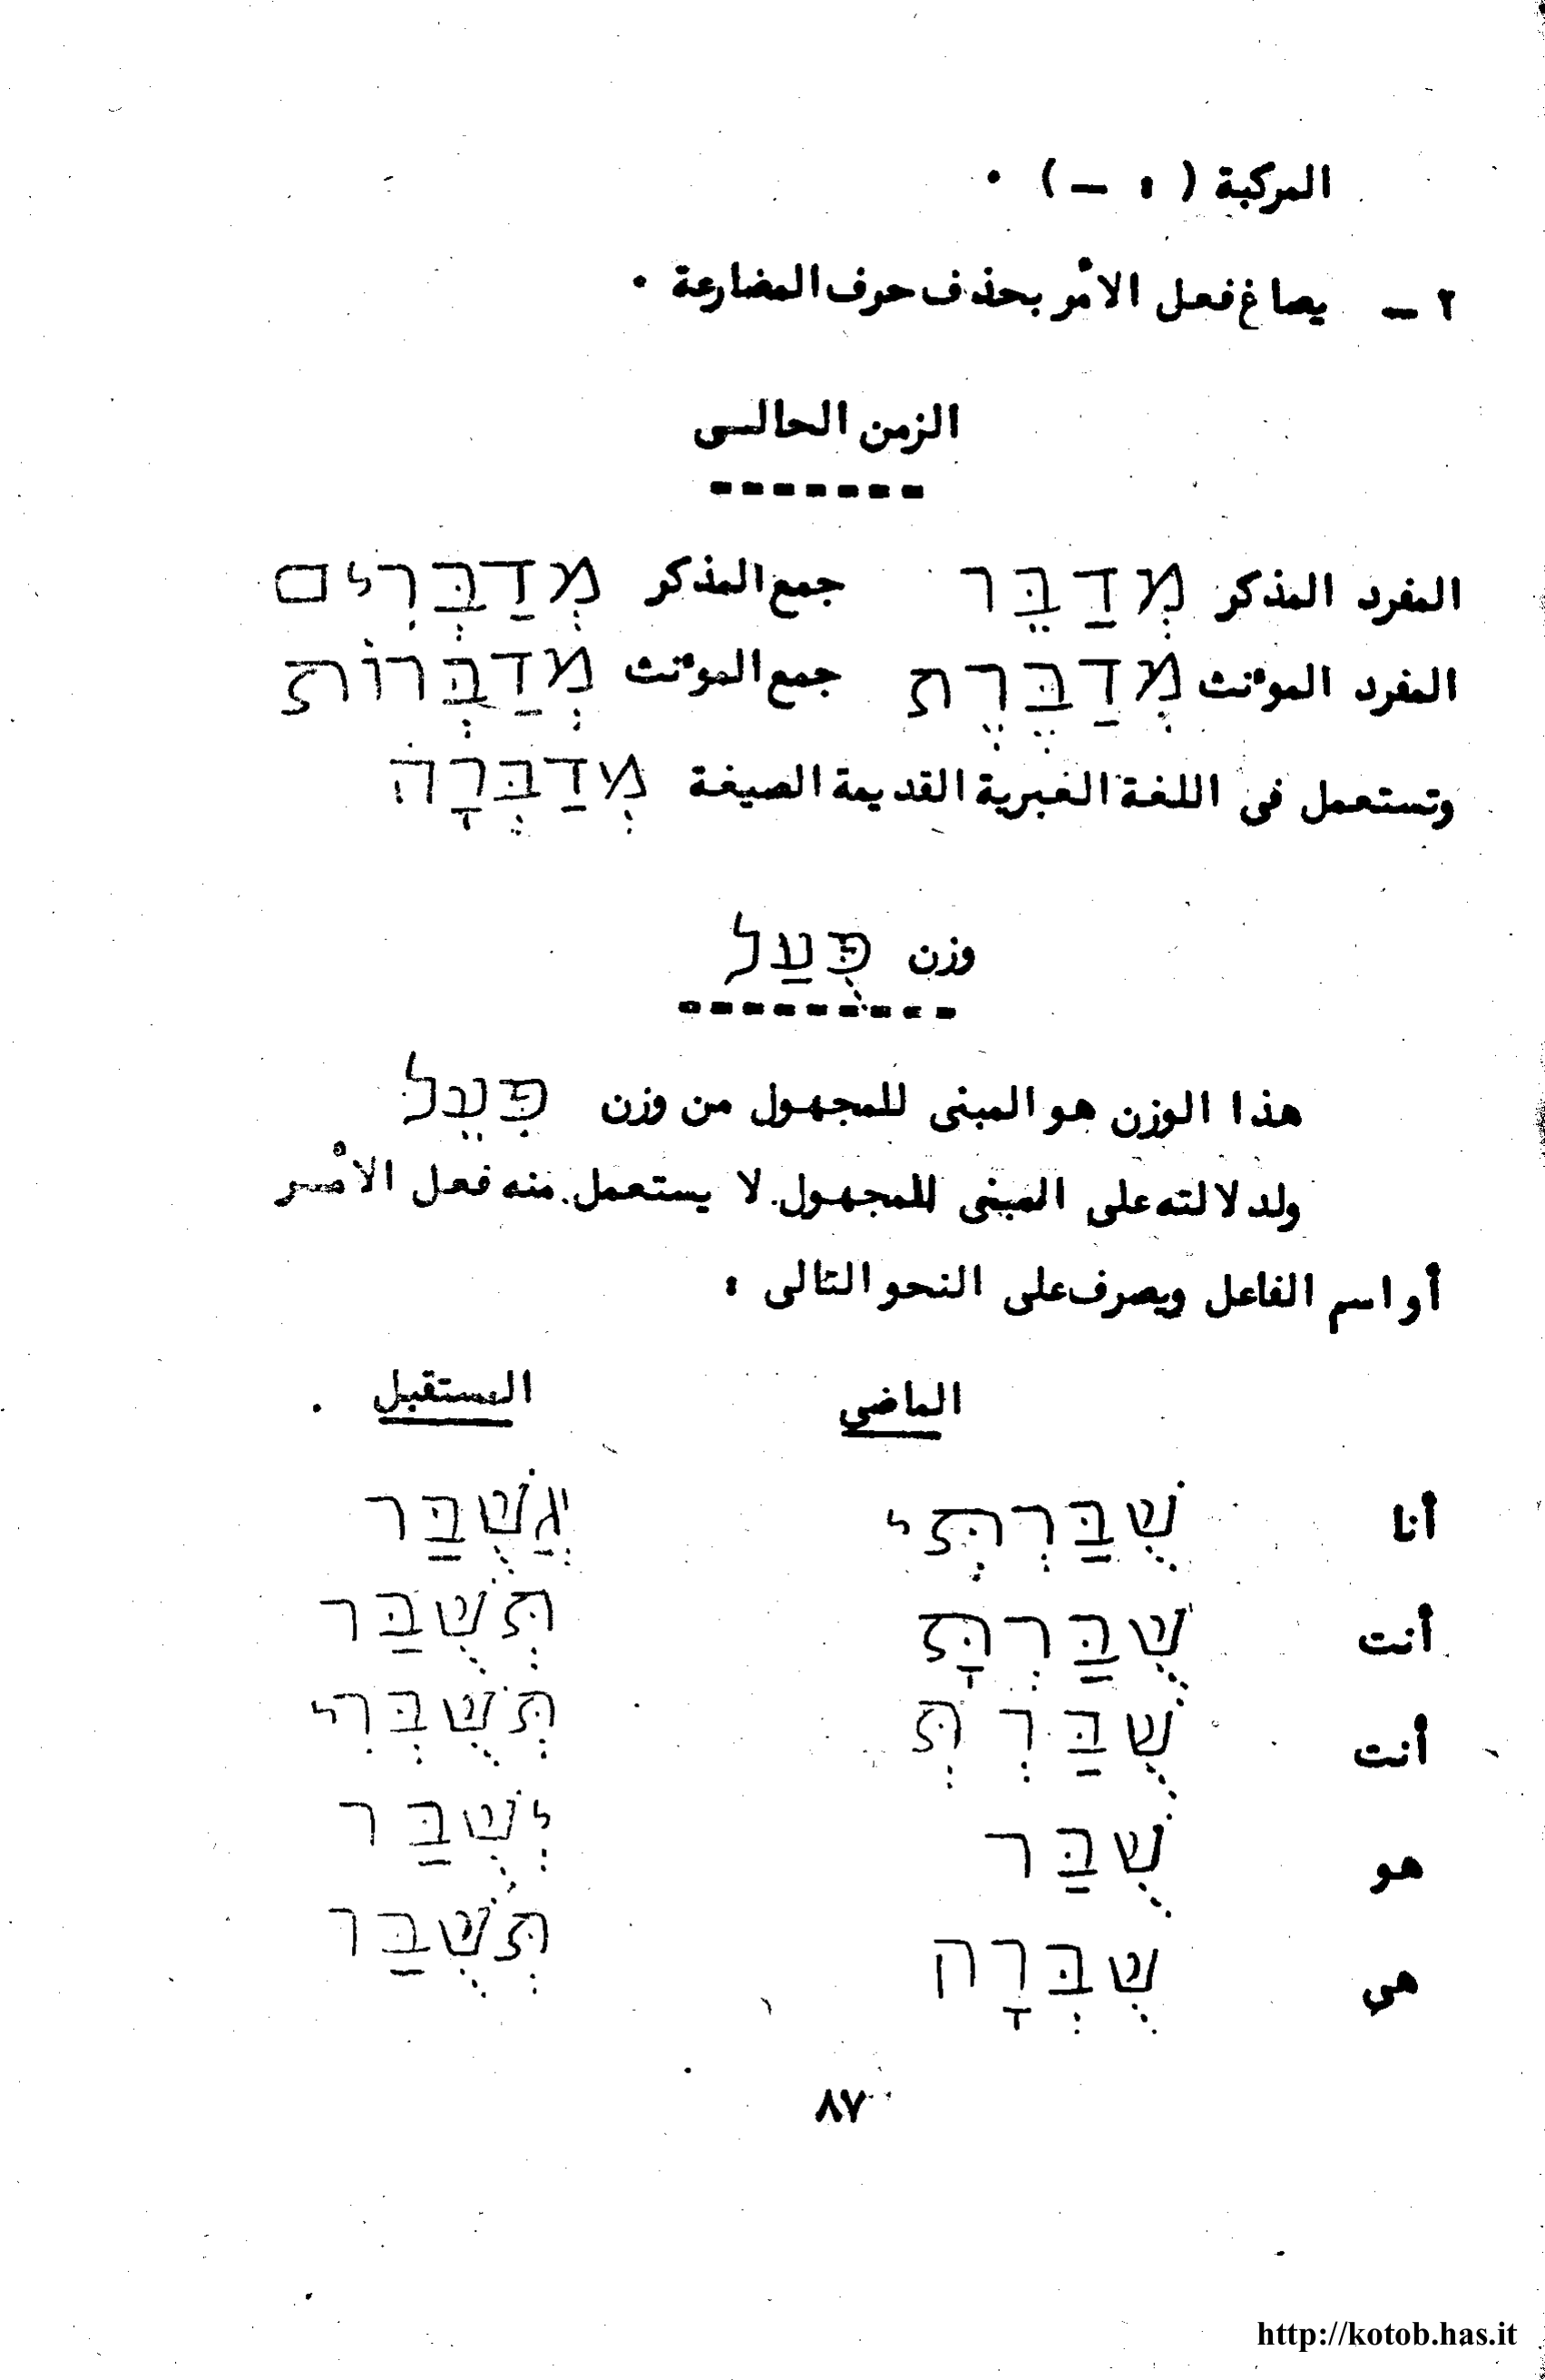 المركبة ( ְ ـَ ) ٠
٢ ــ يصاغ فعل الأمر بحذف حرف المضارعة ٠
الزمن الحالى
المفرد المذكر מְדַבֵּר جمع المذكر מְדַבְּרִים
المفرد المؤنث מְדַבֶּרֶת جمع المؤنث מְדַבְּרוֹת
وتستعمل فى اللغة العبرية القديمة الصيغة מְדַבְּרָה
وزن פֻּעַל
هذا الوزن هو المبنى للمجهول من وزن פִּעֵל
ولدلالته على المبنى للمجهول لا يستعمل منه فعل الأمر
أو اسم الفاعل ويصرف على النحو التالى :
الماضى المستقبل
أنا שֻׁבַּרְתִּי אֲשֻׁבַּר
أنت שֻׁבַּרְתָּ תְּשֻׁבַּר
أنت שֻׁבַּרְתְּ תְּשֻׁבְּרִי
هو שֻׁבַּר יְשֻׁבַּר
هي שֻׁבְּרָה תְּשֻׁבַּר
٨٧
http://kotob.has.it